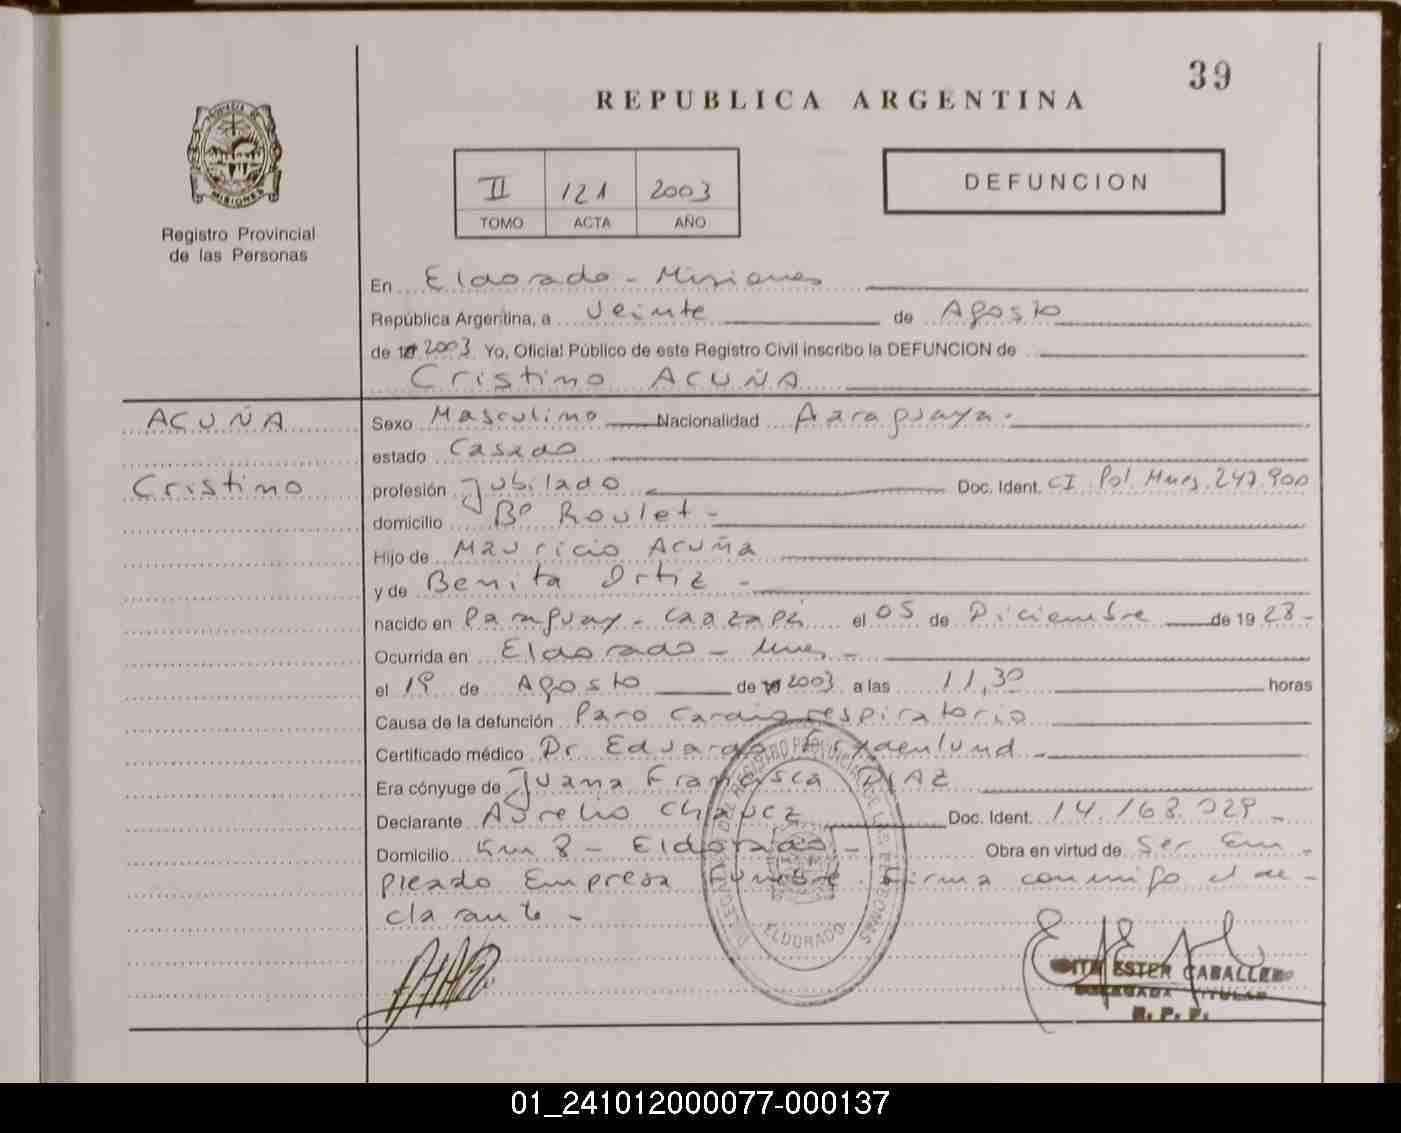 39
REPUBLICA ARGENTINA
MISIONES
Registro Provincial
de las Personas
II 121 2003
TOMO ACTA AÑO
DEFUNCION
En Eldorado - Misiones
República Argentina, a veinte de Agosto
de 2003 Yo, Oficial Público de este Registro Civil inscribo la DEFUNCION de
Cristino ACUÑA
ACUÑA
Cristino
Sexo Masculino Nacionalidad Paraguaya.-
estado Casado
profesión Jubilado Doc. Ident. CI Pol Mnes. 247.900
domicilio Bº Roulet -
Hijo de Mauricio Acuña
y de Benita Ortiz -
nacido en Paraguay - Caazapá el 05 de Diciembre de 19 28 -
Ocurrida en Eldorado - Mnes -
el 19 de Agosto de 2003 a las 11,30 horas
Causa de la defunción Paro Cardiorespiratorio
Certificado médico Dr. Eduardo Frydenlund -
Era cónyuge de Juana Francisca DIAZ
Declarante Aurelio Chavez Doc. Ident. 14.168.029 -
Domicilio Km 8 - Eldorado - Obra en virtud de Ser Em -
pleado Empresa Funebre. Firma conmigo el de -
clarante -
ELDORADO
ESTER CABALLERO
DELEGADA TITULAR
R. P. P.
01_241012000077-000137